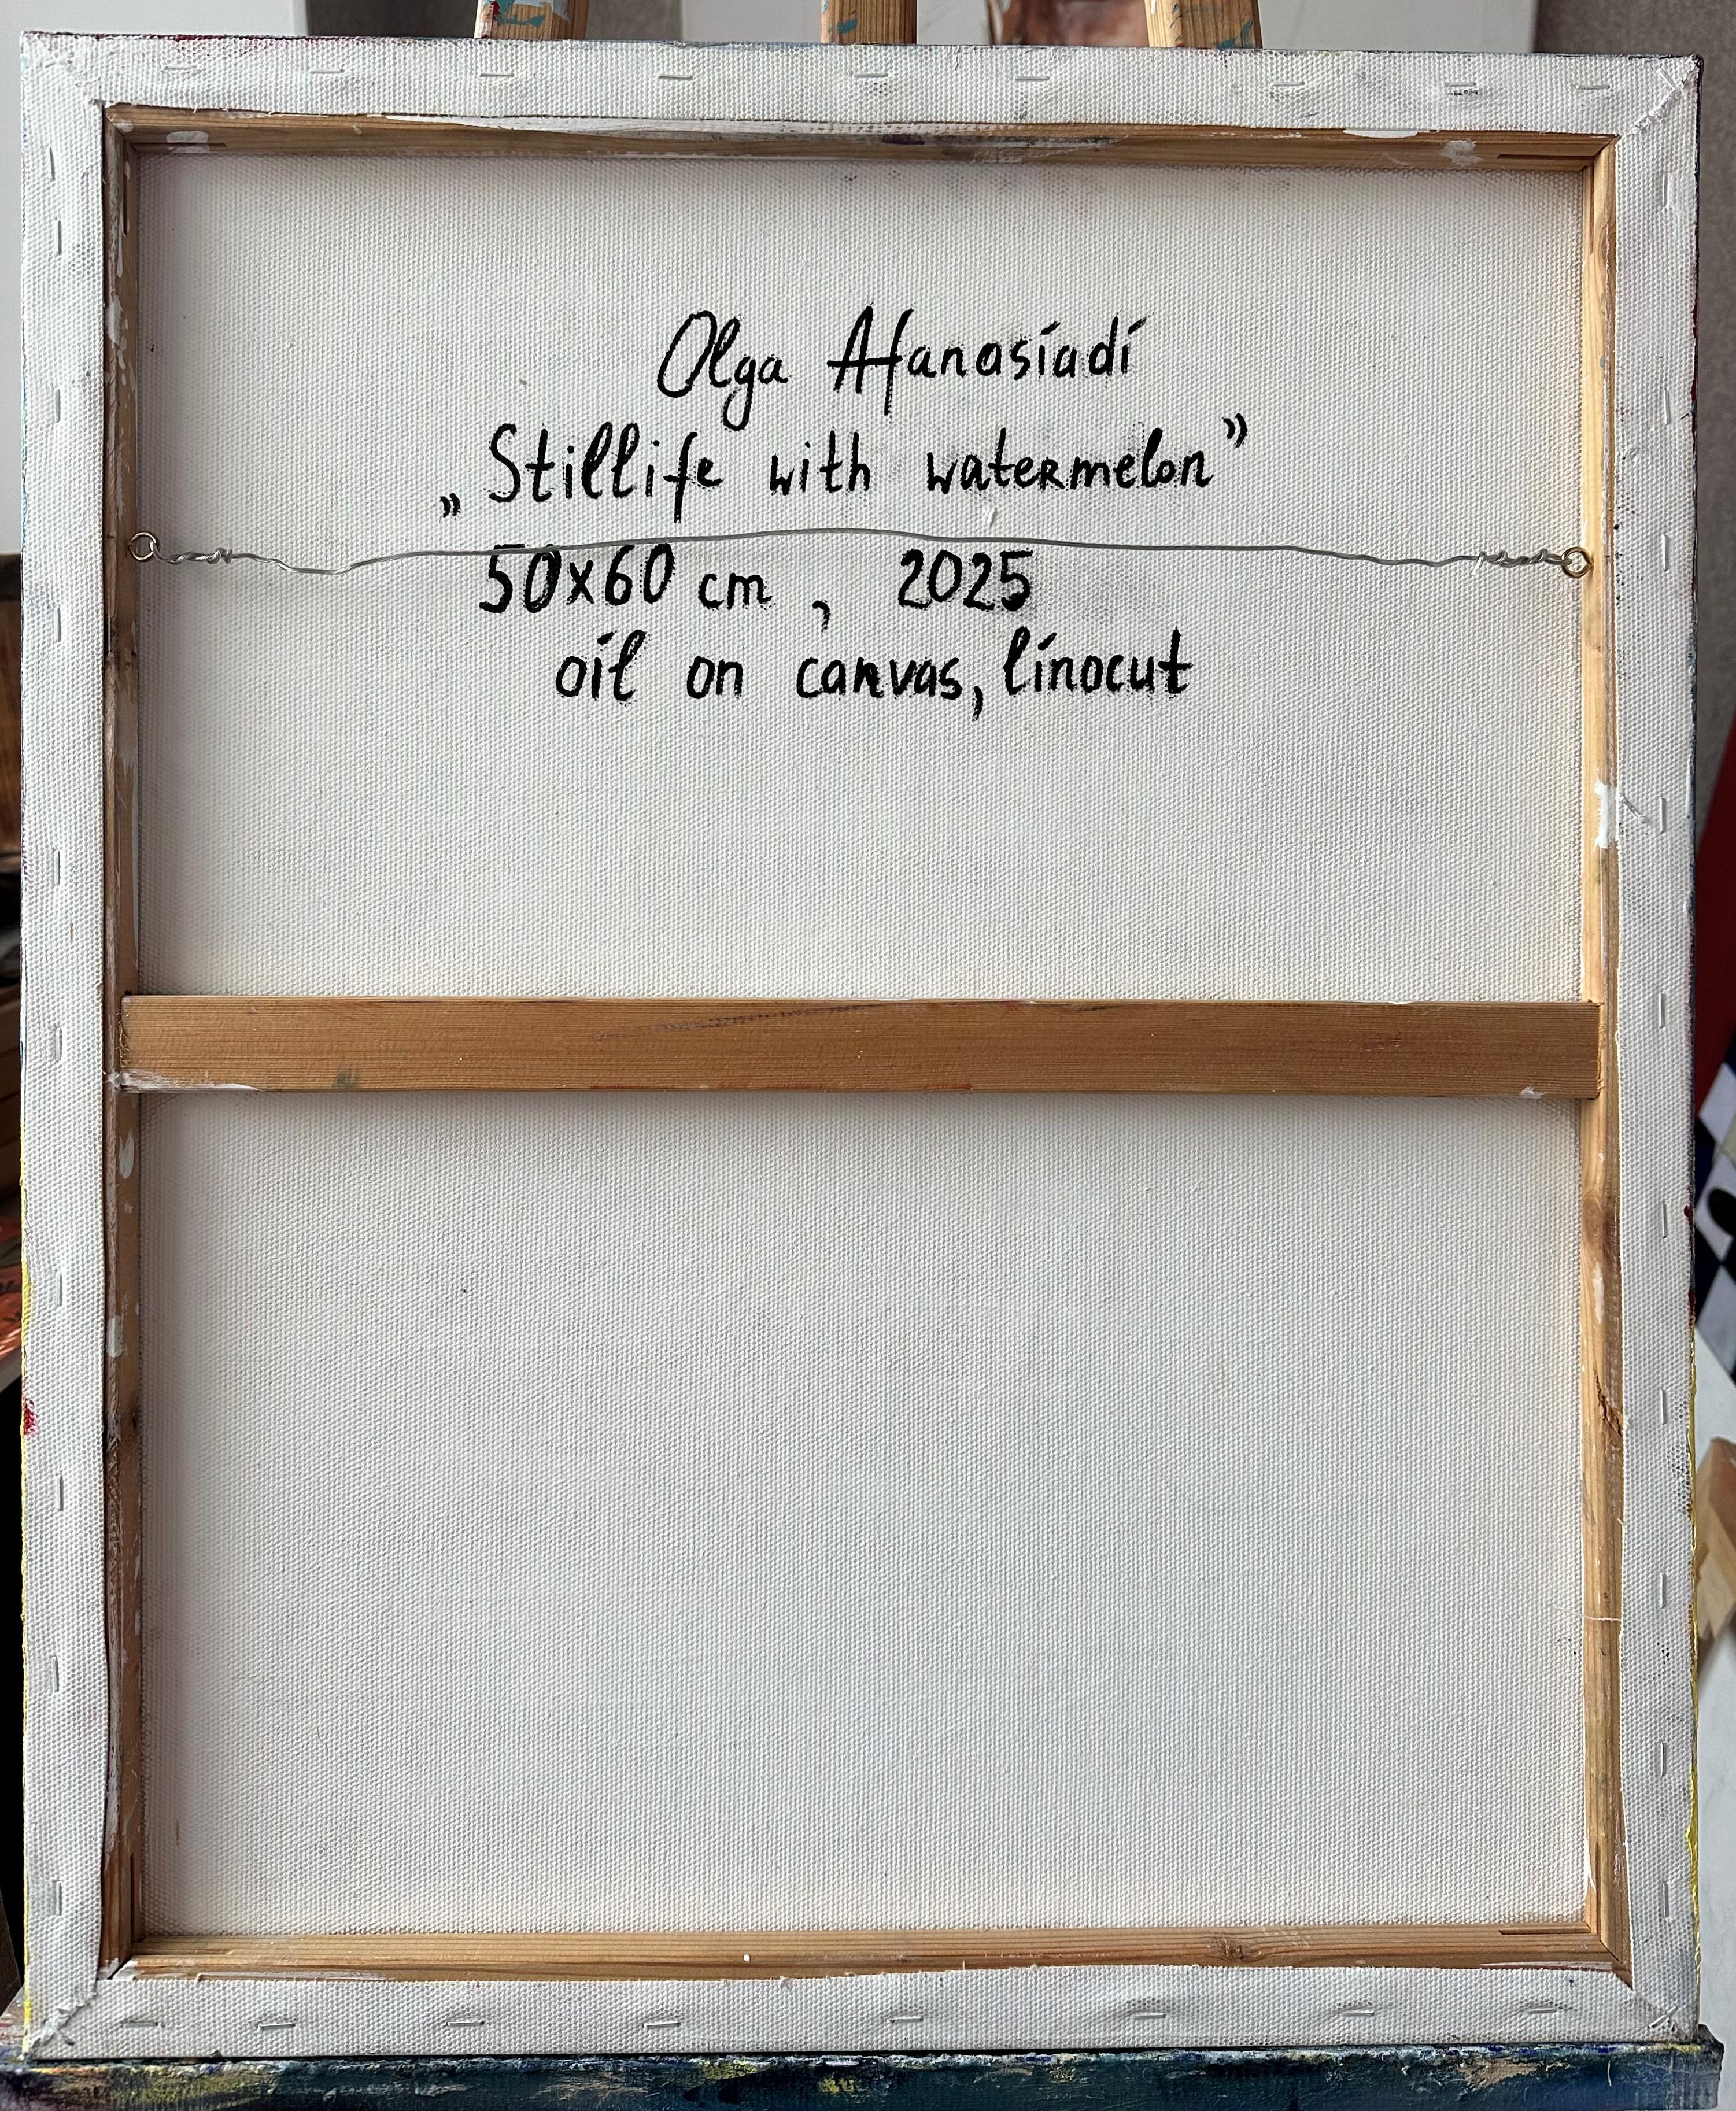 Olga Afanasiadi
„Stillife with watermelon”
50x60 cm , 2025
oil on canvas, linocut